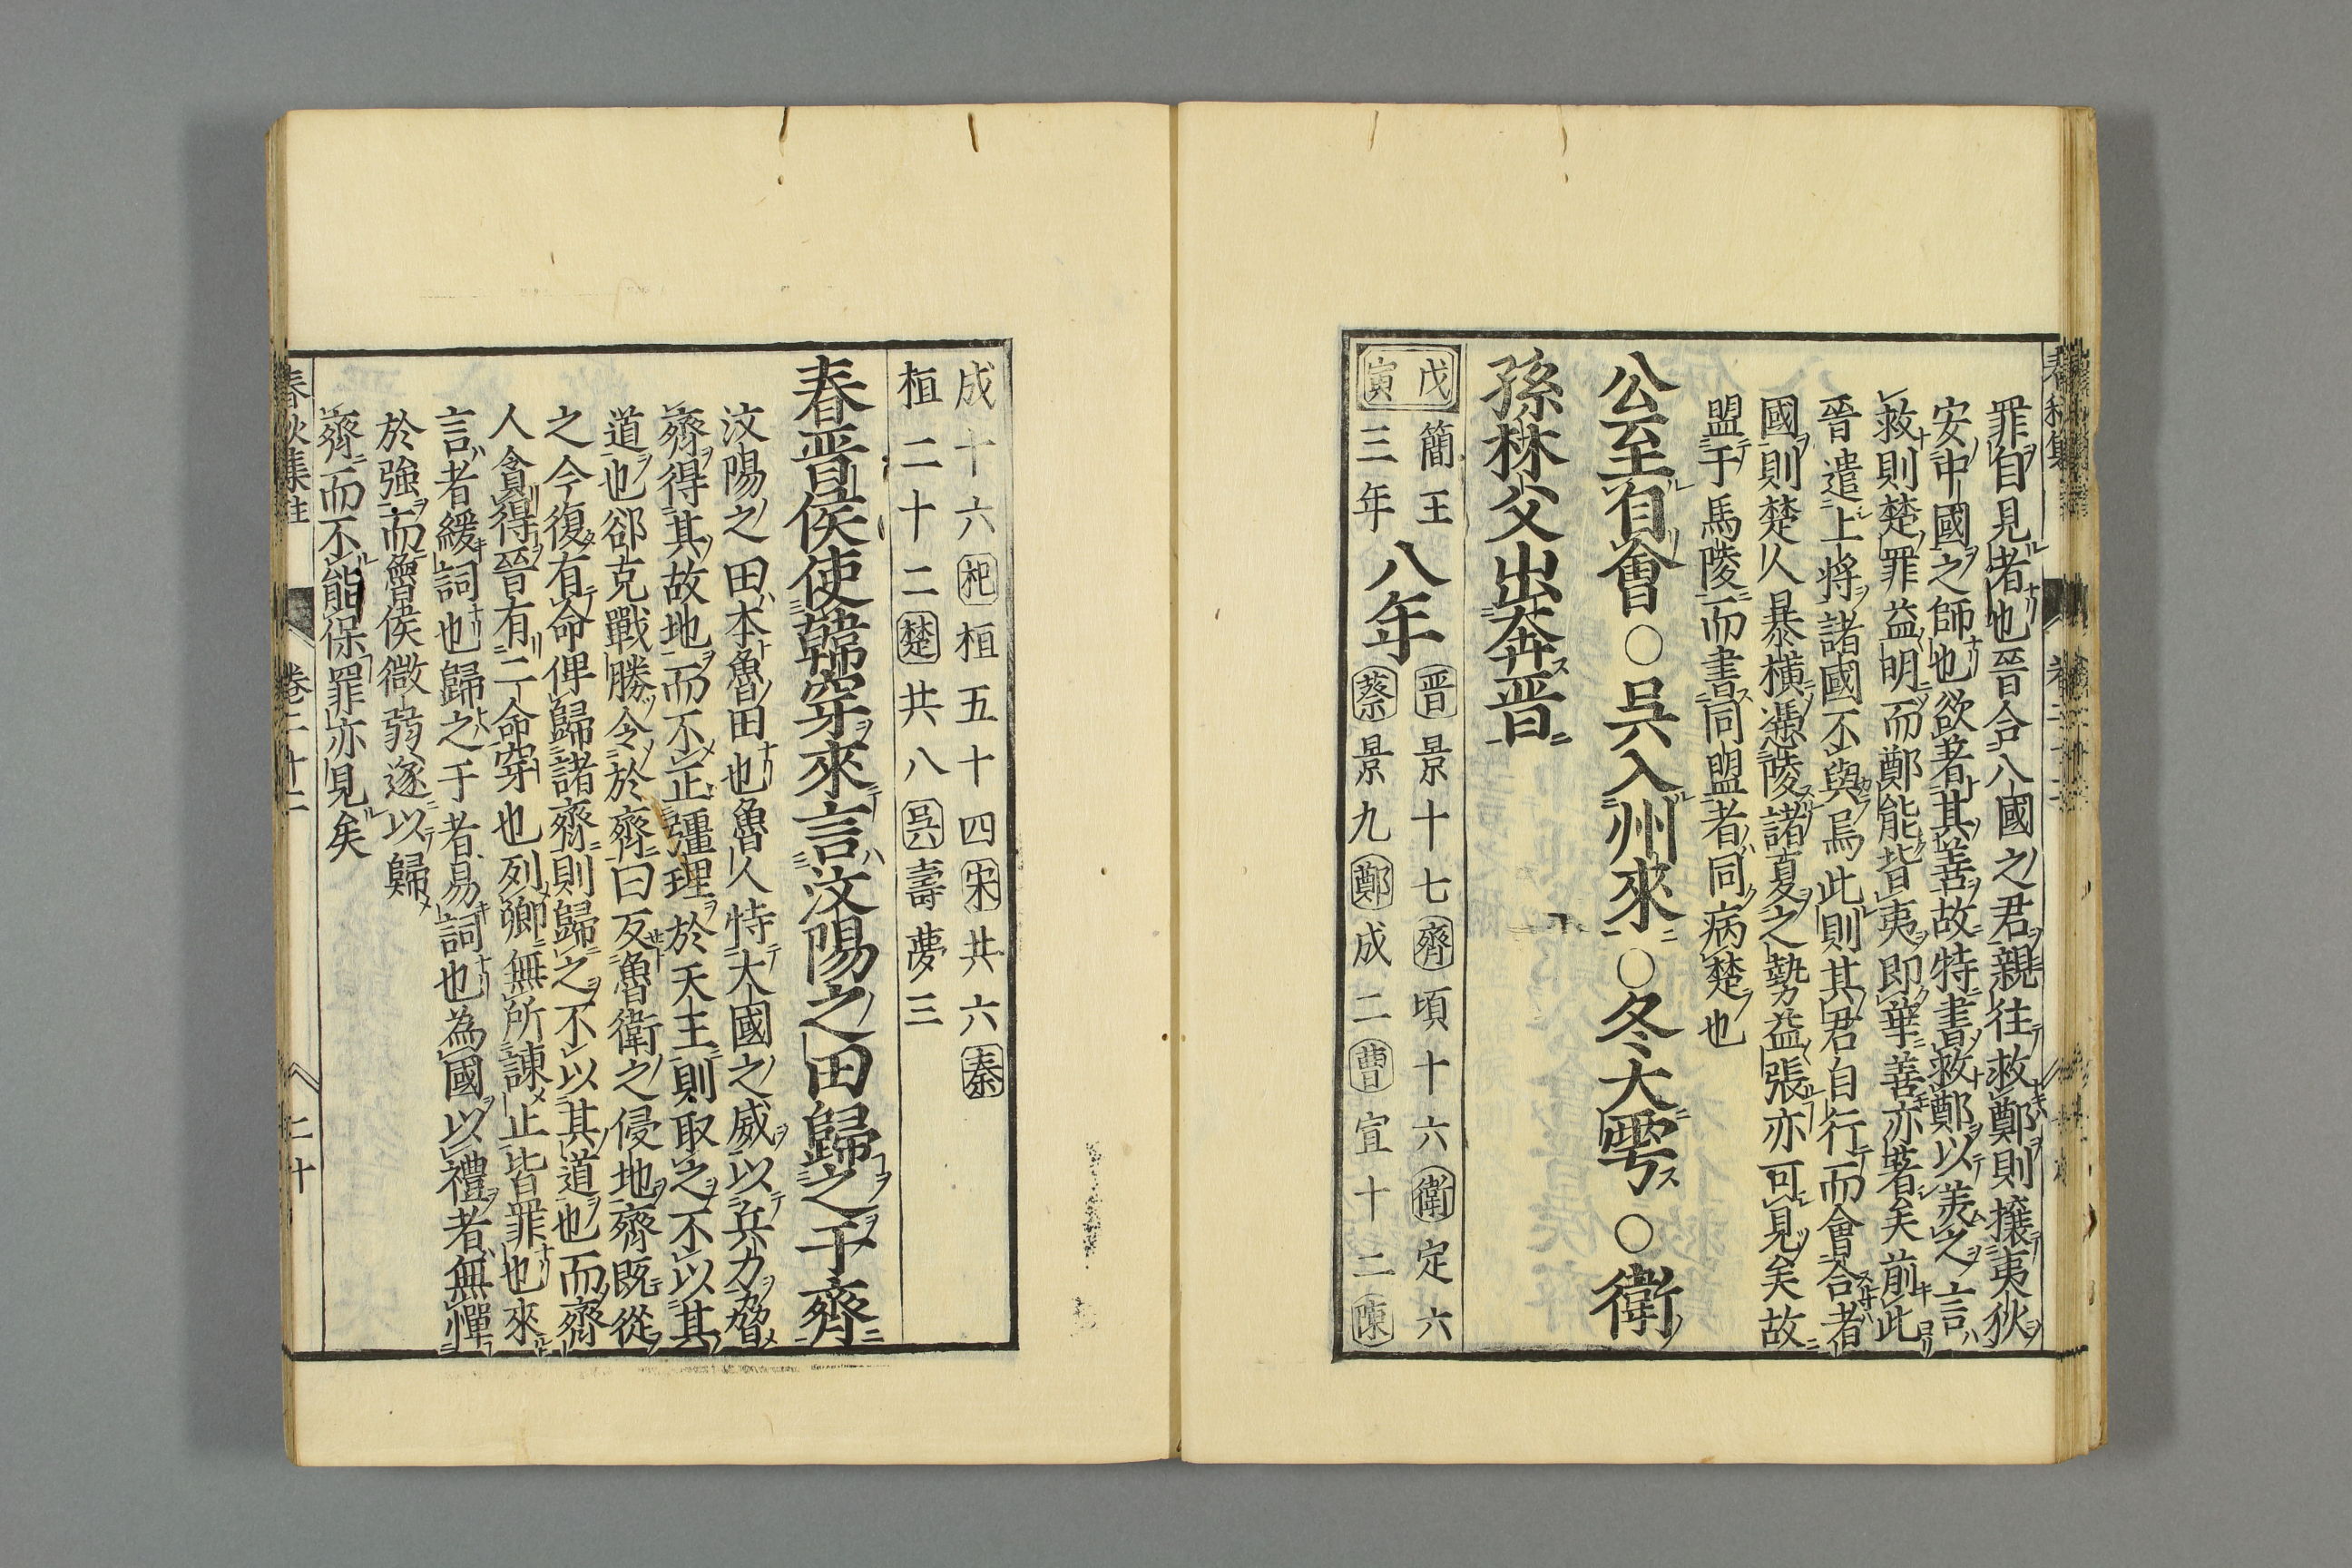 罪自見者也晉合八國之君親往救鄭則攘夷狄
安中國之師也欲著其善故特書救鄭以美之言
救則楚罪益明而鄭能背夷即華善亦著矣前此
晉遣上將諸國不與焉此則其君自行而會合者
國則楚人暴橫憑陵諸夏之勢益張亦可見矣故
盟于馬陵而書同盟者同病楚也
公至自會○吳入州來○冬大雩○衛
孫林父出奔晋
戊寅
簡王三年
八年
晋景十七齊頃十六衛定六
蔡景九鄭成二曹宣十二陳
成十六杞桓五十四宋共六秦
桓二十二楚共八吳壽夢三
春晋侯使韓穿來言汶陽之田歸之于齊
汶陽之田本魯田也魯人恃大國之威以兵力脅
齊得其故地而不正疆理於天王則取之不以其
道也郤克戰勝令於齊曰反魯衛之侵地齊既從
之今復有命俾歸諸齊則歸之不以其道也而齊
人貪得晉有二命穿也列卿無所諫止皆罪也來
言者緩詞也歸之于者易詞也為國以禮者無憚
於強而魯侯微弱遂以歸
齊而不能保罪亦見矣
春秋集註
卷二十二
二十